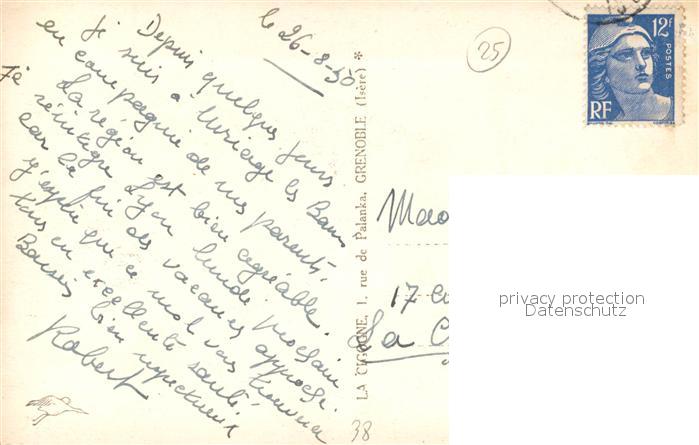 le 26-8-50
Depuis quelques jours
je suis à Uriage les Bains
en compagnie de mes parents.
La région est bien agréable.
Je réintègre Lyon lundi prochain
car la fin des vacances approche.
J'espère que ce mot vous trouvera
tous en excellente santé.
Baisers bien respectueux
Robert
25
12F
POSTES
RF
LA CIGOGNE, 1, rue de Palanka, GRENOBLE (Isère) *
Mad
17
La C
38
privacy protection
Datenschutz